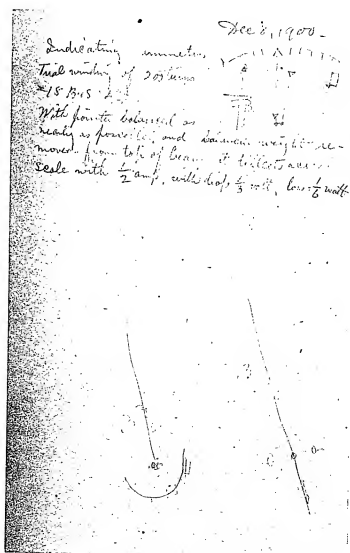 Dec 8, 1900 -
Indicating ammeter
Trial winding of 20 turns
#18 B&S
With points balanced as
nearly as possible, and balance weight re-
moved from top of beam it
scale with 1/2 amp, with drop 1/3 volt, loss 1/6 watt